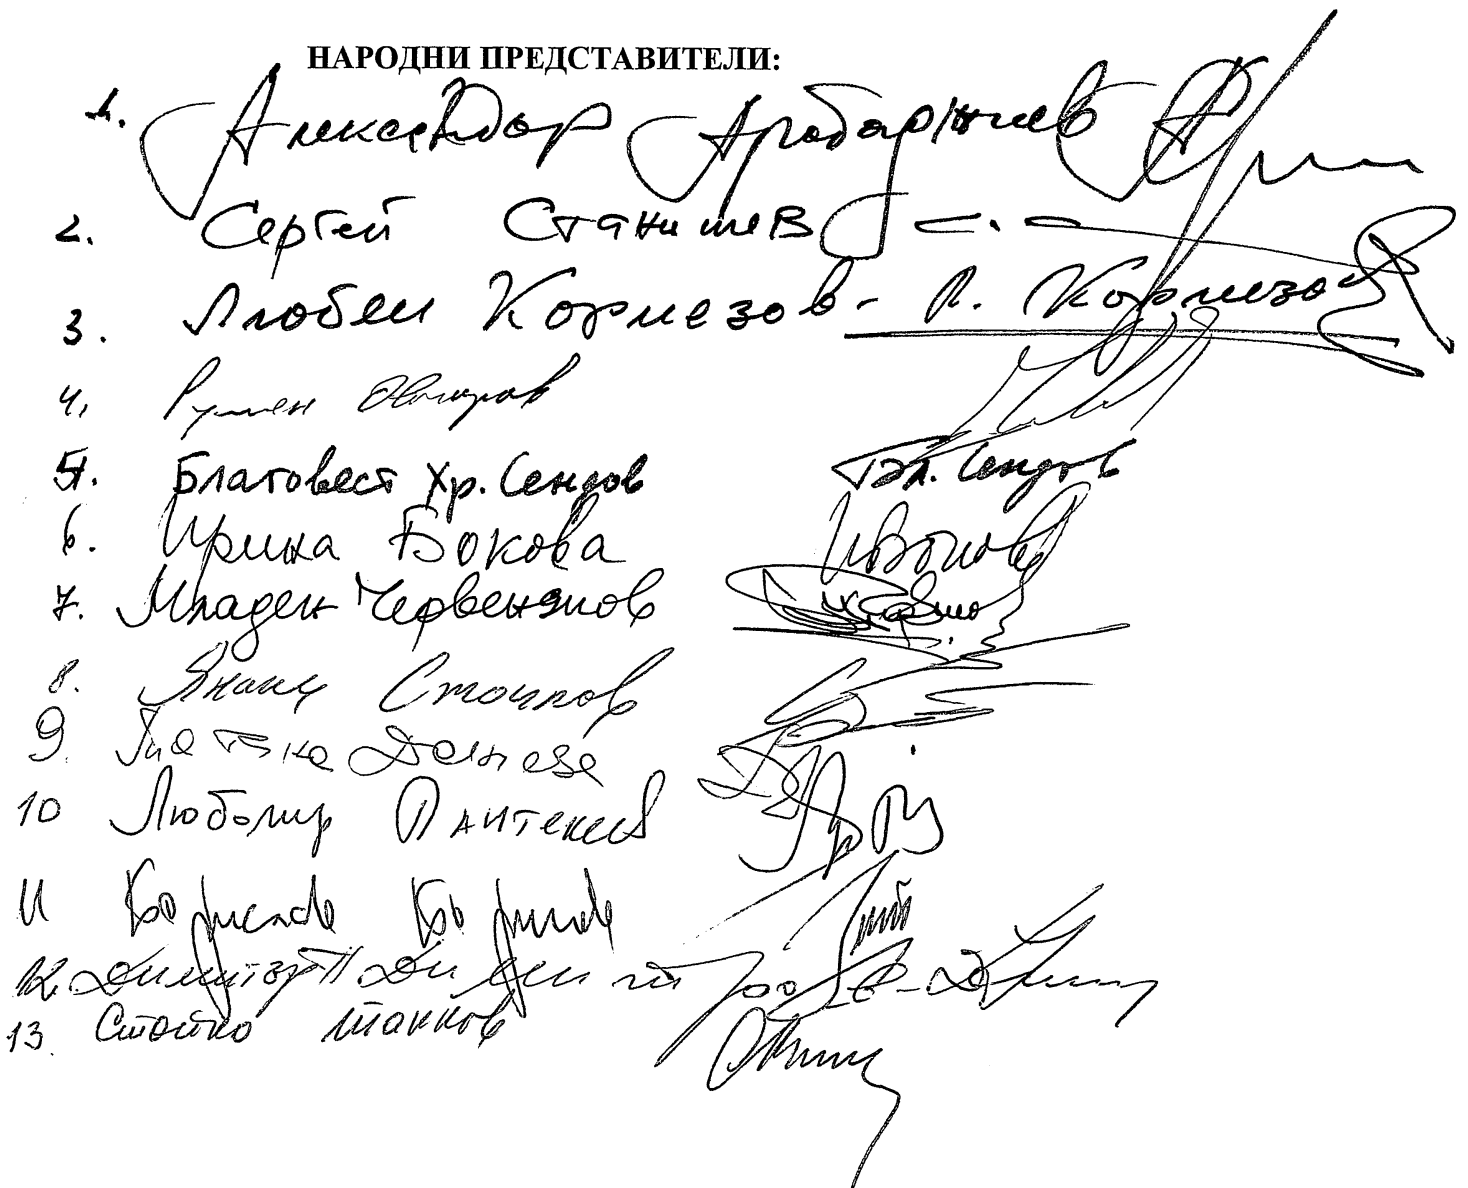 НАРОДНИ ПРЕДСТАВИТЕЛИ:
1. Александър Арабаджиев
2. Сергей Станишев С. С
3. Любен Корнезов - Л. Корнезов
4. Румен Овчаров
5. Благовест Хр. Сендов Бл. Сендов
6. Ирина Бокова ИБокова
7. Младен Червеняков
8. Янаки Стоилов
9. Татяна Дончева
10 Любомир Пантелеев
11
12. Димитър Димитров
13. Стойко Танков